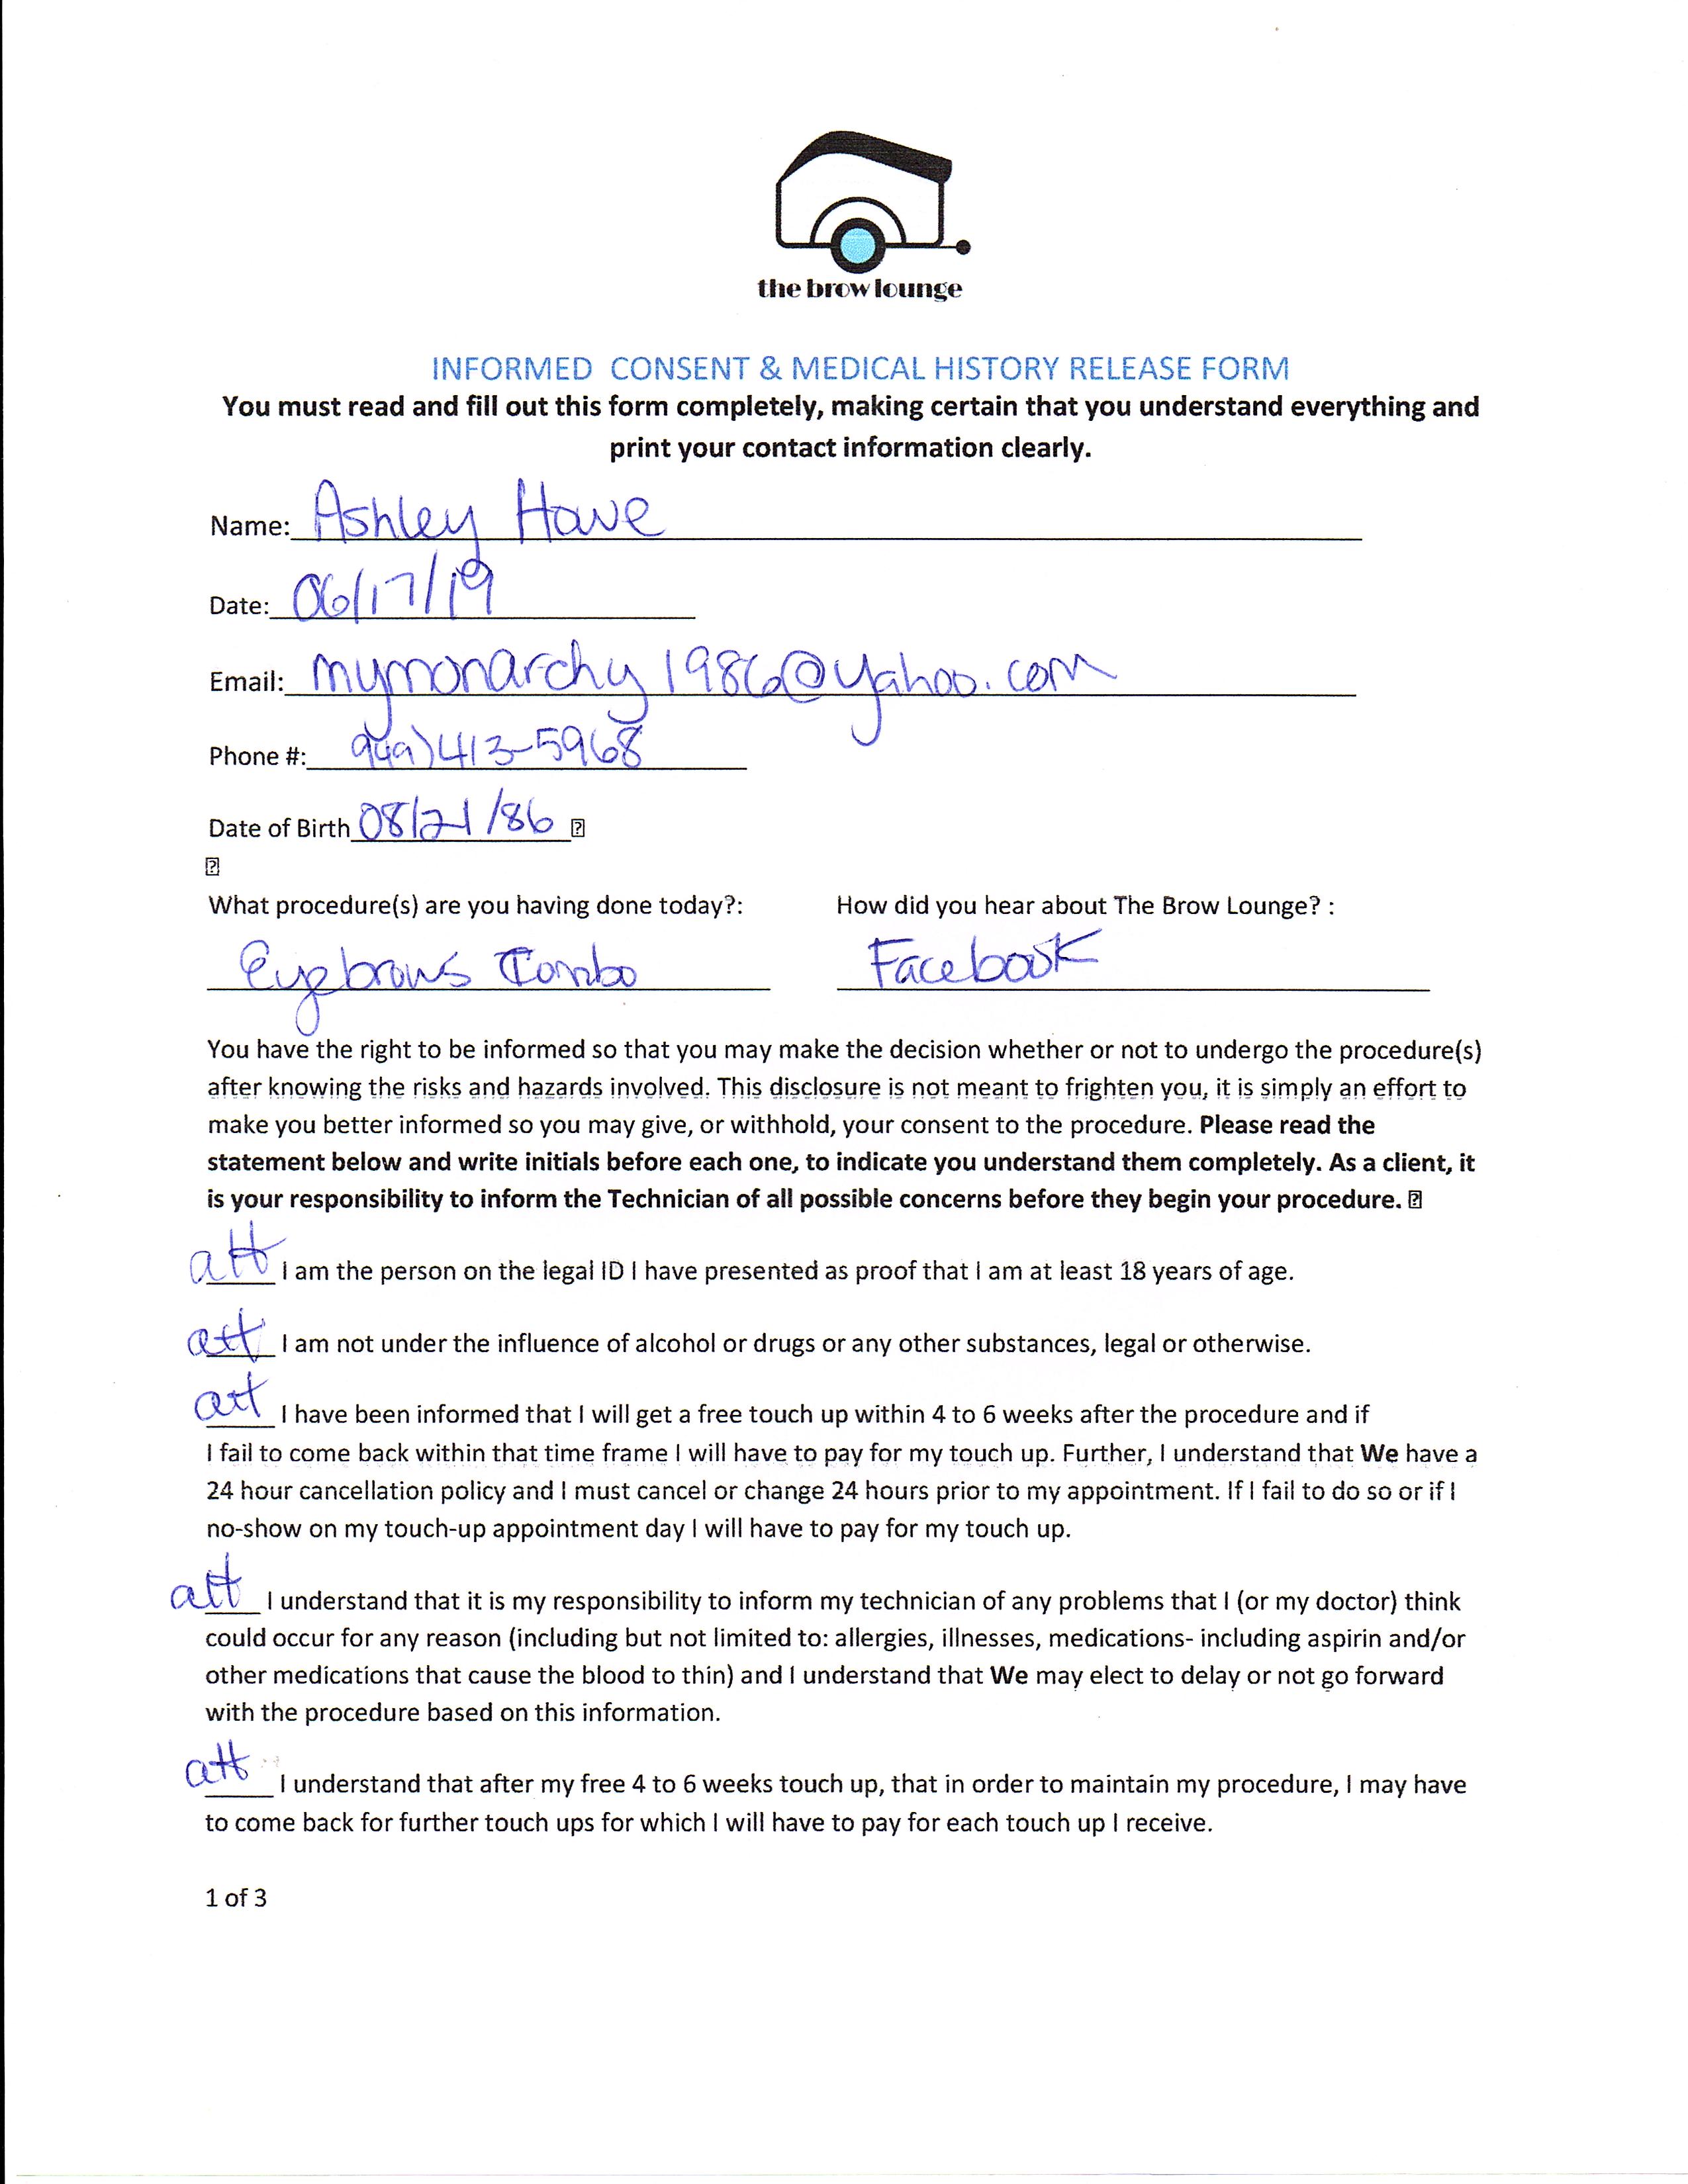 the brow lounge
INFORMED CONSENT & MEDICAL HISTORY RELEASE FORM
You must read and fill out this form completely, making certain that you understand everything and
print your contact information clearly.
Name: Ashley Howe
Date: 06/17/19
Email: mymonarchy1986@yahoo.com
Phone #: 949)413-5968
Date of Birth 08/21/86
What procedure(s) are you having done today?: How did you hear about The Brow Lounge? :
Eyebrows Combo Facebook
You have the right to be informed so that you may make the decision whether or not to undergo the procedure(s)
after knowing the risks and hazards involved. This disclosure is not meant to frighten you, it is simply an effort to
make you better informed so you may give, or withhold, your consent to the procedure. Please read the
statement below and write initials before each one, to indicate you understand them completely. As a client, it
is your responsibility to inform the Technician of all possible concerns before they begin your procedure.
I am the person on the legal ID I have presented as proof that I am at least 18 years of age.
I am not under the influence of alcohol or drugs or any other substances, legal or otherwise.
I have been informed that I will get a free touch up within 4 to 6 weeks after the procedure and if
I fail to come back within that time frame I will have to pay for my touch up. Further, I understand that We have a
24 hour cancellation policy and I must cancel or change 24 hours prior to my appointment. If I fail to do so or if I
no-show on my touch-up appointment day I will have to pay for my touch up.
I understand that it is my responsibility to inform my technician of any problems that I (or my doctor) think
could occur for any reason (including but not limited to: allergies, illnesses, medications- including aspirin and/or
other medications that cause the blood to thin) and I understand that We may elect to delay or not go forward
with the procedure based on this information.
I understand that after my free 4 to 6 weeks touch up, that in order to maintain my procedure, I may have
to come back for further touch ups for which I will have to pay for each touch up I receive.
1 of 3